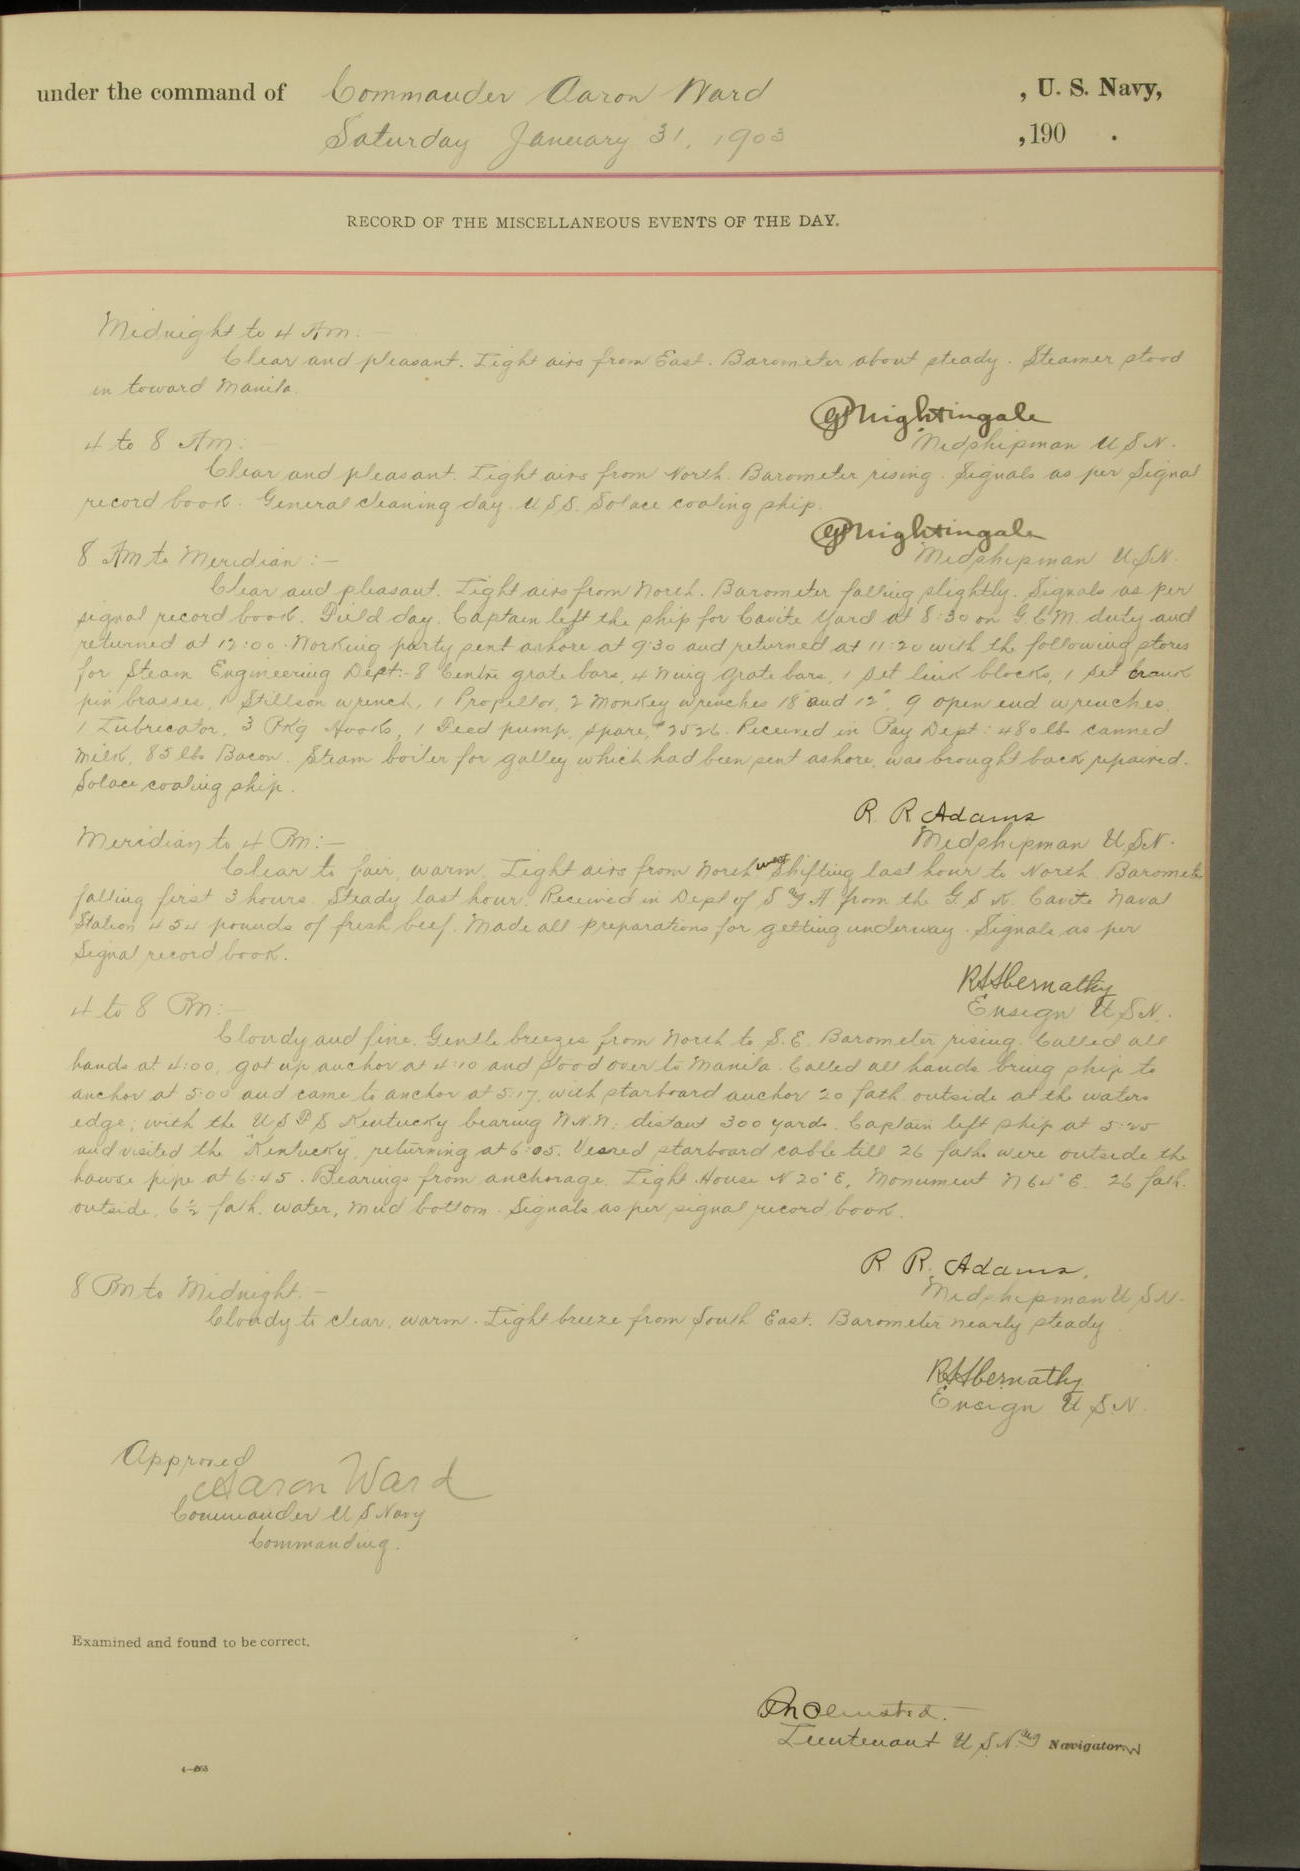 under the command of Commander Aaron Ward , U. S. Navy,
Saturday January 31, 1903 , 190 .
RECORD OF THE MISCELLANEOUS EVENTS OF THE DAY.
Midnight to 4 Am. —
Clear and pleasant. Light airs from East. Barometer about steady. Steamer stood
in toward Manila.
Nightingale
Midshipman U S N.
4 to 8 Am: —
Clear and pleasant. Light airs from North. Barometer rising. Signals as per Signal
record book. General cleaning day. U S S. Solace coaling ship.
Nightingale
Midshipman U S N.
8 Am to Meridian :—
Clear and pleasant. Light airs from North. Barometer falling slightly. Signals as per
signal record book. Field day. Captain left the ship for Cavite Yard at 8:30 on G.C.M. duty and
returned at 12:00. Working party sent ashore at 9:30 and returned at 11:20 with the following stores
for Steam Engineering Dept:- 8 Centre grate bars, 4 Wing grate bars, 1 set link blocks, 1 set crank
pin brasses, 1 Stillson wrench, 1 Propellor, 2 Monkey wrenches 18" and 12", 9 open end wrenches,
1 Lubricator, 3 Pkg Hooks, 1 Feed pump, spare, #2526. Received in Pay Dept: 480 lbs canned
Milk, 85 lbs Bacon. Steam boiler for galley which had been sent ashore, was brought back repaired.
Solace coaling ship.
R. R. Adams
Midshipman U.S.N.
Meridian to 4 Pm:—
Clear to fair, warm. Light airs from North west Shifting last hour to North. Barometer
falling first 3 hours. Steady last hour. Received in Dept of S & A from the G S K. Cavite Naval
Station 454 pounds of fresh beef. Made all preparations for getting underway. Signals as per
Signal record book.
R S Abernathy
Ensign U S N.
4 to 8 Pm:—
Cloudy and fine. Gentle breezes from North to S.E. Barometer rising. Called all
hands at 4:00, got up anchor at 4:10 and stood over to Manila. Called all hands bring ship to
anchor at 5:00 and came to anchor at 5:17, with starboard anchor 20 fath. outside at the waters
edge; with the U S F S Kentucky bearing W.N.W. distant 300 yards. Captain left ship at 5:25
and visited the "Kentucky", returning at 6:05. Veered starboard cable till 26 faths were outside the
hawse pipe at 6:45. Bearings from anchorage, Light House N 20° E, Monument N 64° E. 26 fath.
outside, 6 ½ fath. water, Mud bottom. Signals as per signal record book.
R. R. Adams.
Midshipman U S N.
8 Pm to Midnight. —
Cloudy to clear, warm. Light breeze from South East. Barometer nearly steady.
R S Abernathy
Ensign U S N.
Approved
Aaron Ward
Commander U S Navy
Commanding.
Examined and found to be correct.
Olmsted.
Lieutenant U. S. N. Navigator.